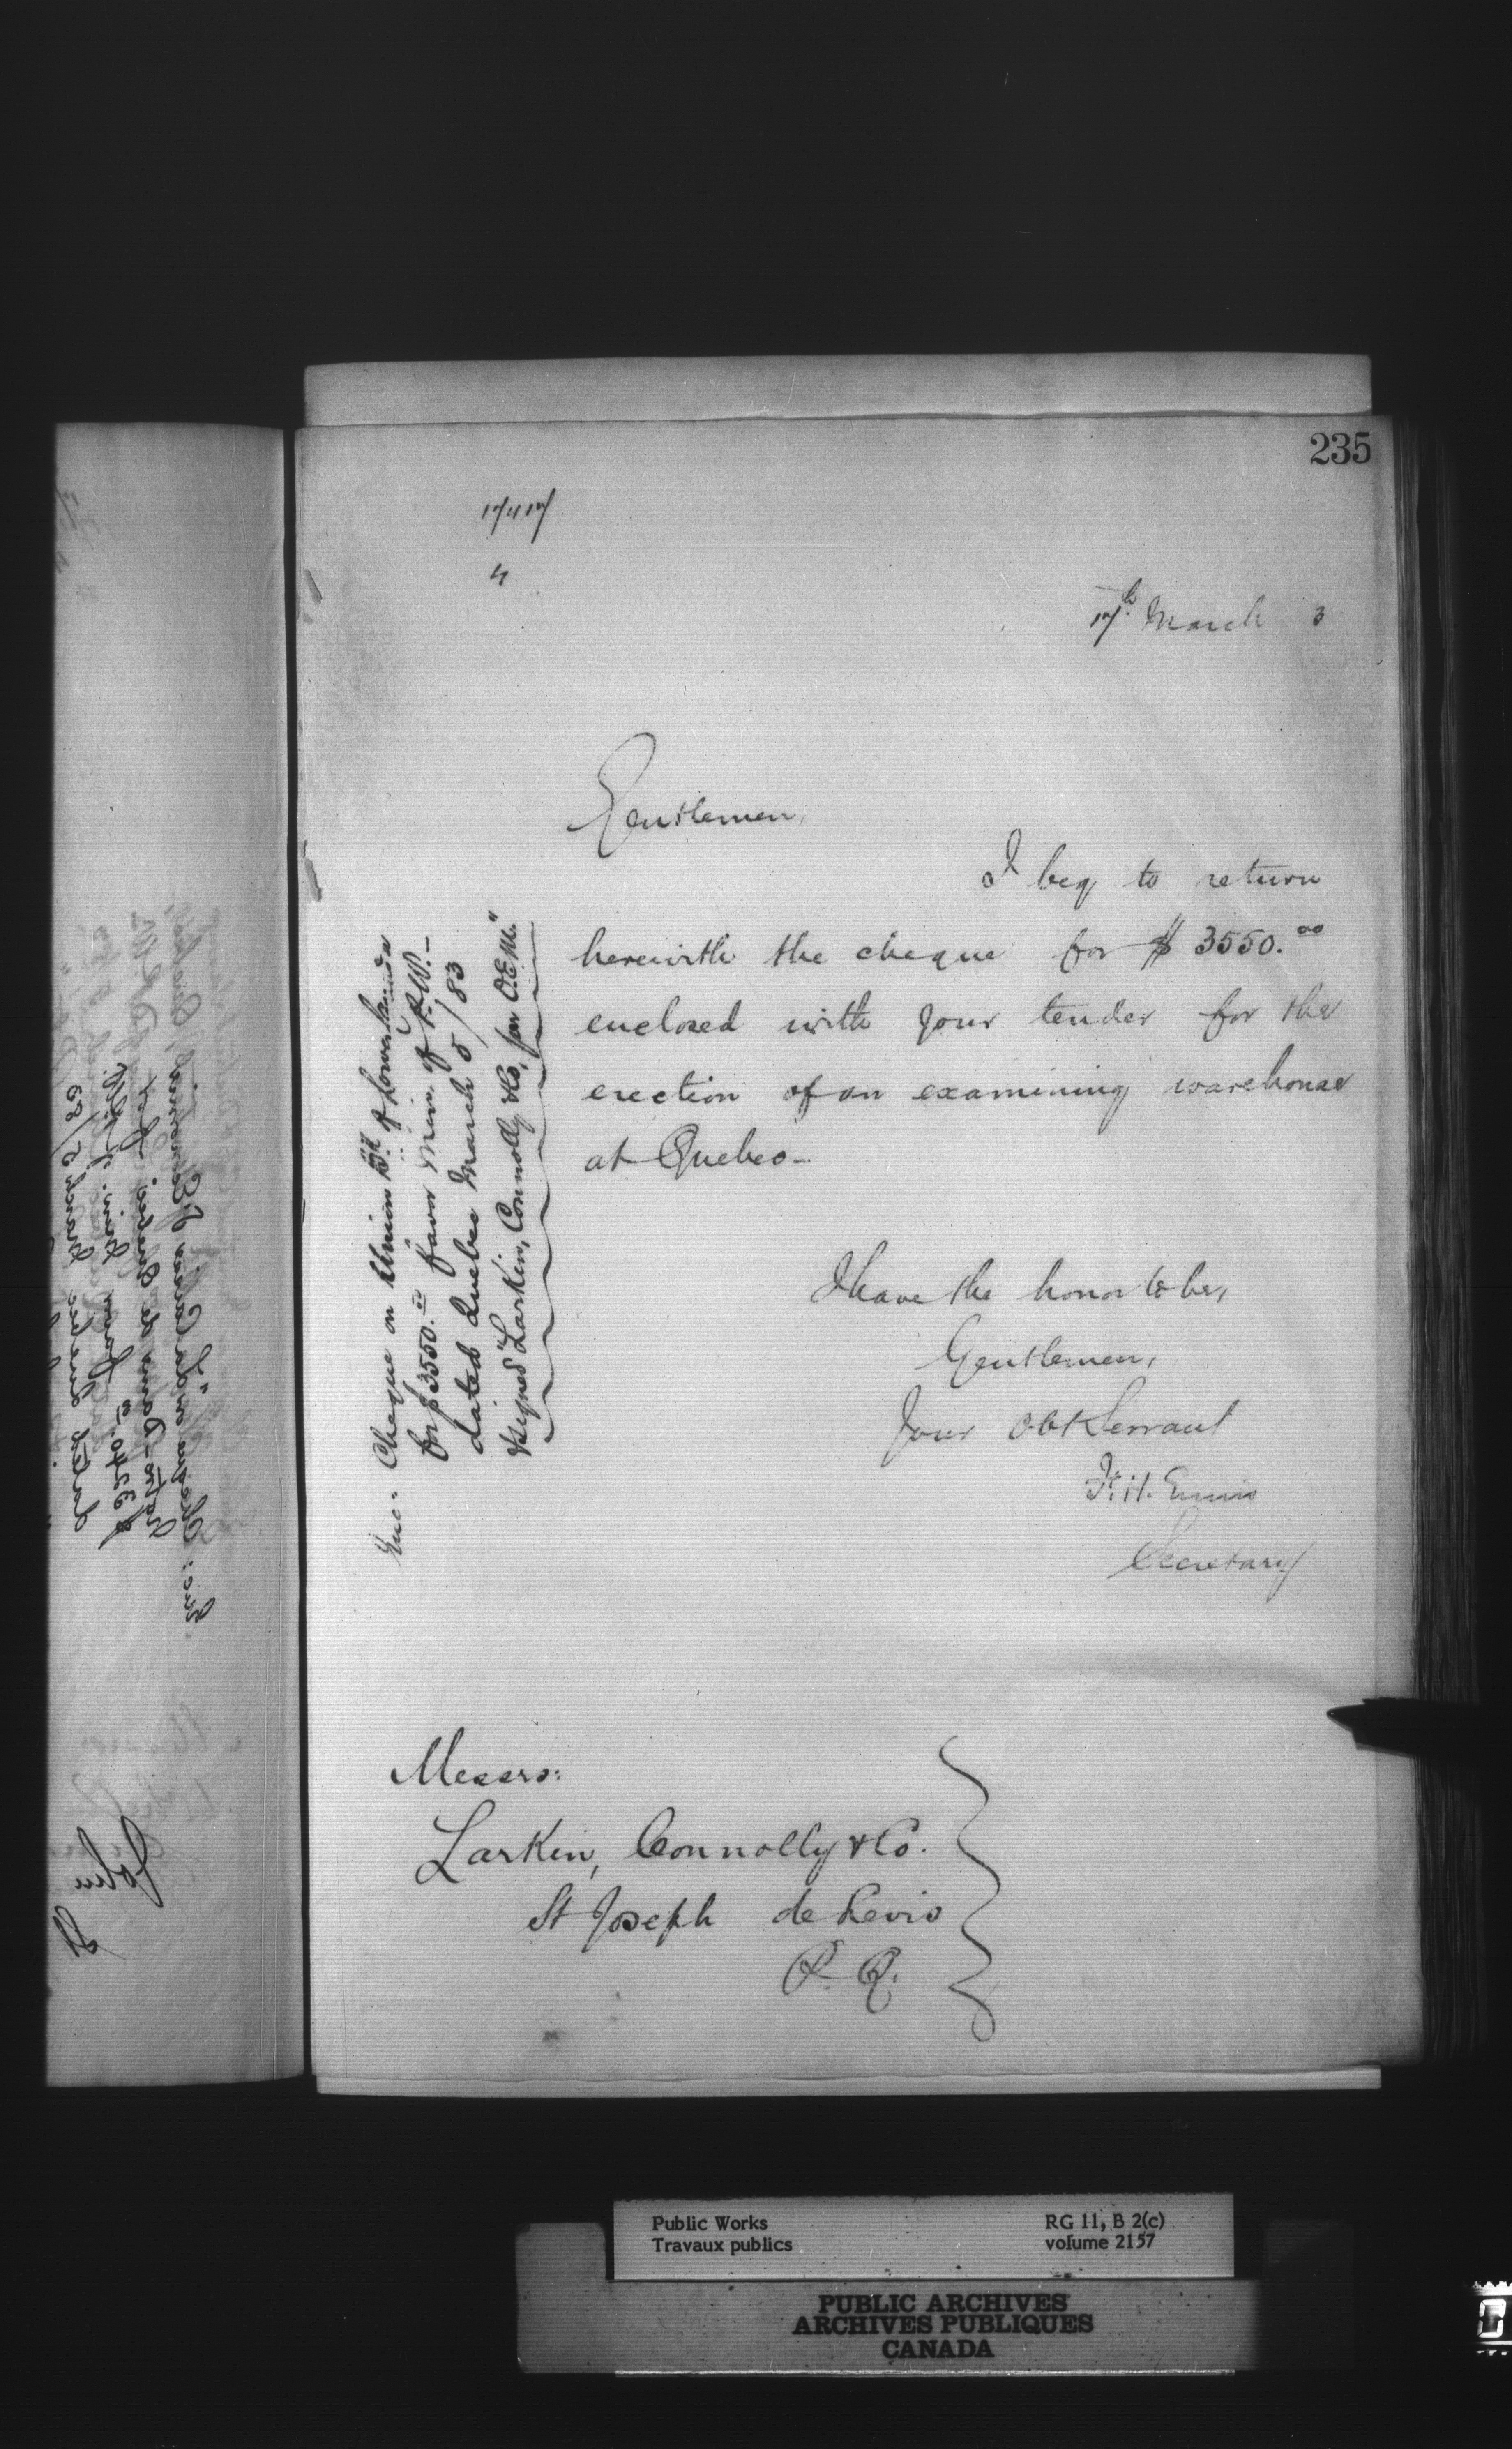 235
17417
4
17th March 3
Gentlemen,
I beg to return
herewith the cheque for $3550.00
enclosed with your tender for the
erection of an examining warehouse
at Quebec-
I have the honor to be,
Gentlemen,
Your Obt Servant
F. H. Ennis
Secretary
Enc. Cheque on Union Bk of Lower Canada
for $3550.00 favor Min. of P.W.-
dated Quebec March 5/83
& signed "Larkin, Connolly & Co, per O.E.M."
Messrs:
Larkin, Connolly & Co.
St Joseph de Levis
P. Q.
John
Public Works
Travaux publics
RG 11, B 2(c)
volume 2157
PUBLIC ARCHIVES
ARCHIVES PUBLIQUES
CANADA